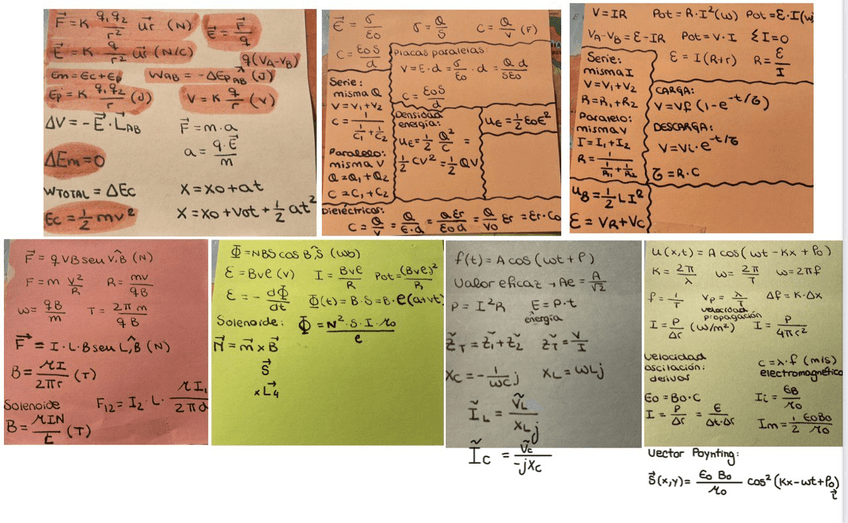 F⃗ = K q₁q₂/r² u⃗r (N)
E⃗ = F⃗/q
E⃗ = K q/r² u⃗r (N/C)
q(VA-VB)
Em = Ec + Ep
WAB = -ΔEpAB (J)
Ep = K q₁q₂/r (J)
V = K q/r (V)
ΔV = -E⃗·L⃗AB
F⃗ = m·a
ΔEm = 0
a = q·E⃗/m
WTOTAL = ΔEc
X = X0 + at
Ec = 1/2 mv²
X = X0 + V0t + 1/2 at²
E⃗ = σ/E0
σ = Q/S
C = Q/V (F)
C = E0S/d
Placas paralelas:
V = E·d = σ/E0 · d = Qd/SE0
C = E0S/d
Serie:
misma Q
V = V1 + V2
C = 1/(1/C1 + 1/C2)
Paralelo:
misma V
Q = Q1 + Q2
C = C1 + C2
Densidad
energía:
uE = 1/2 Q²/C =
1/2 CV² = 1/2 QV
uE = 1/2 E0E²
Dieléctricos:
C = Q/V = Q/E·d = QEr/E0d = Q/V0 Er = Er·C0
V = IR
Pot = R·I² (W)
Pot = E·I (W
VA-VB = E-IR
Pot = V·I
ΣI = 0
Serie:
misma I
V = V1 + V2
R = R1 + R2
Paralelo:
misma V
I = I1 + I2
R = 1/(1/R1 + 1/R2)
E = I(R+r)
R = E/I
CARGA:
V = Vf (1-e^-t/τ)
DESCARGA:
V = Vi·e^-t/τ
τ = R·C
uB = 1/2 LI²
E = VR + VC
F⃗ = qVB sen V̂B (N)
F = m V²/R
R = mv/qB
ω = qB/m
T = 2πm/qB
F⃗ = I·L·B sen L̂B (N)
B = μI/2πr (T)
Solenoide
B = μIN/ℓ (T)
F12 = I2·L·
Φ = NBS cos B̂S (Wb)
E = Bvℓ (V)
I = Bvℓ/R
Pot = (Bvℓ)²/R
E = -dΦ/dt
Φ(t) = B·S = B·ℓ(a+vt)
Solenoide:
Φ = N²·S·I·μ0/ℓ
M⃗ = m⃗ × B⃗
S⃗
f(t) = A cos(ωt + φ)
Valor eficaz → Ae = A/√2
P = I²R
E = P·t
energía
Z̃T = Z̃1 + Z̃2
Z̃T = V/I
XC = -1/ωC j
XL = ωLj
ĨL = ṼL/XLj
ĨC = ṼC/-jXC
u(x,t) = A cos(ωt - Kx + φ0)
K = 2π/λ
ω = 2π/T
ω = 2πf
f = 1/T
VP = λ/T
velocidad
propagación
Δφ = K·Δx
I = P/Δr (W/m²)
I = P/4πr²
velocidad
oscilación:
derivar
c = λ·f (m/s)
electromagnético
E0 = B0·C
Ii = EB/μ0
I = P/Δr = E/Δt·Δr
Im = 1/2 E0B0/μ0
Vector Poynting:
S⃗(x,y) = E0 B0/μ0 cos²(Kx-ωt+φ0)